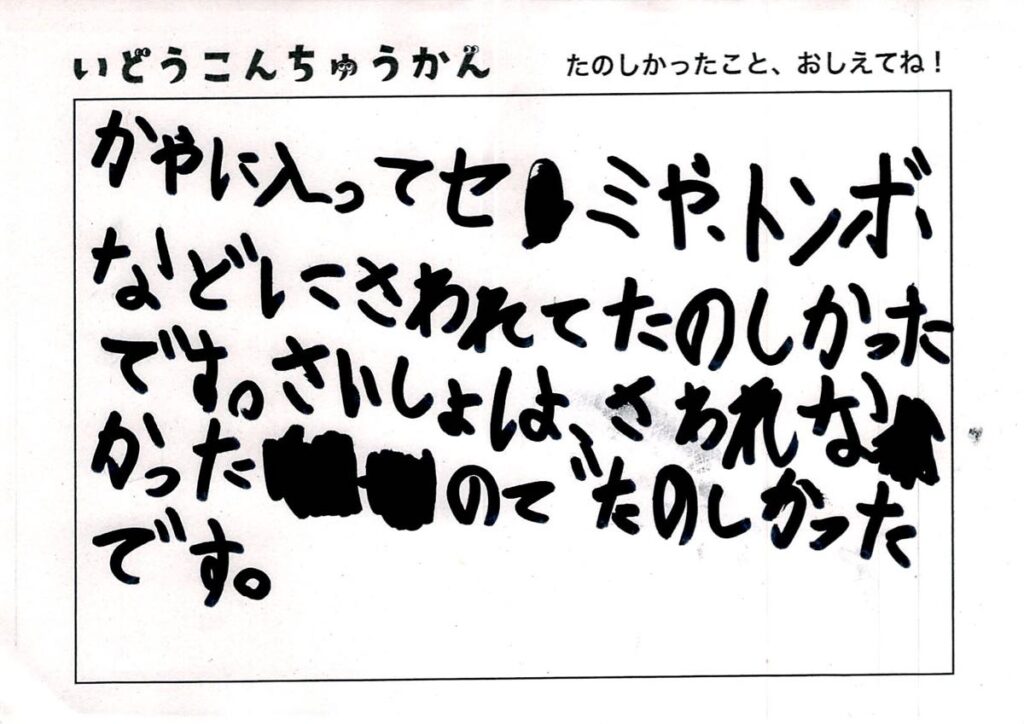 いどうこんちゅうかん たのしかったこと、おしえてね!
かやに入ってセミや、トンボ
などにさわれてたのしかった
です。さいしょは、さわれな
かったのでたのしかった
です。